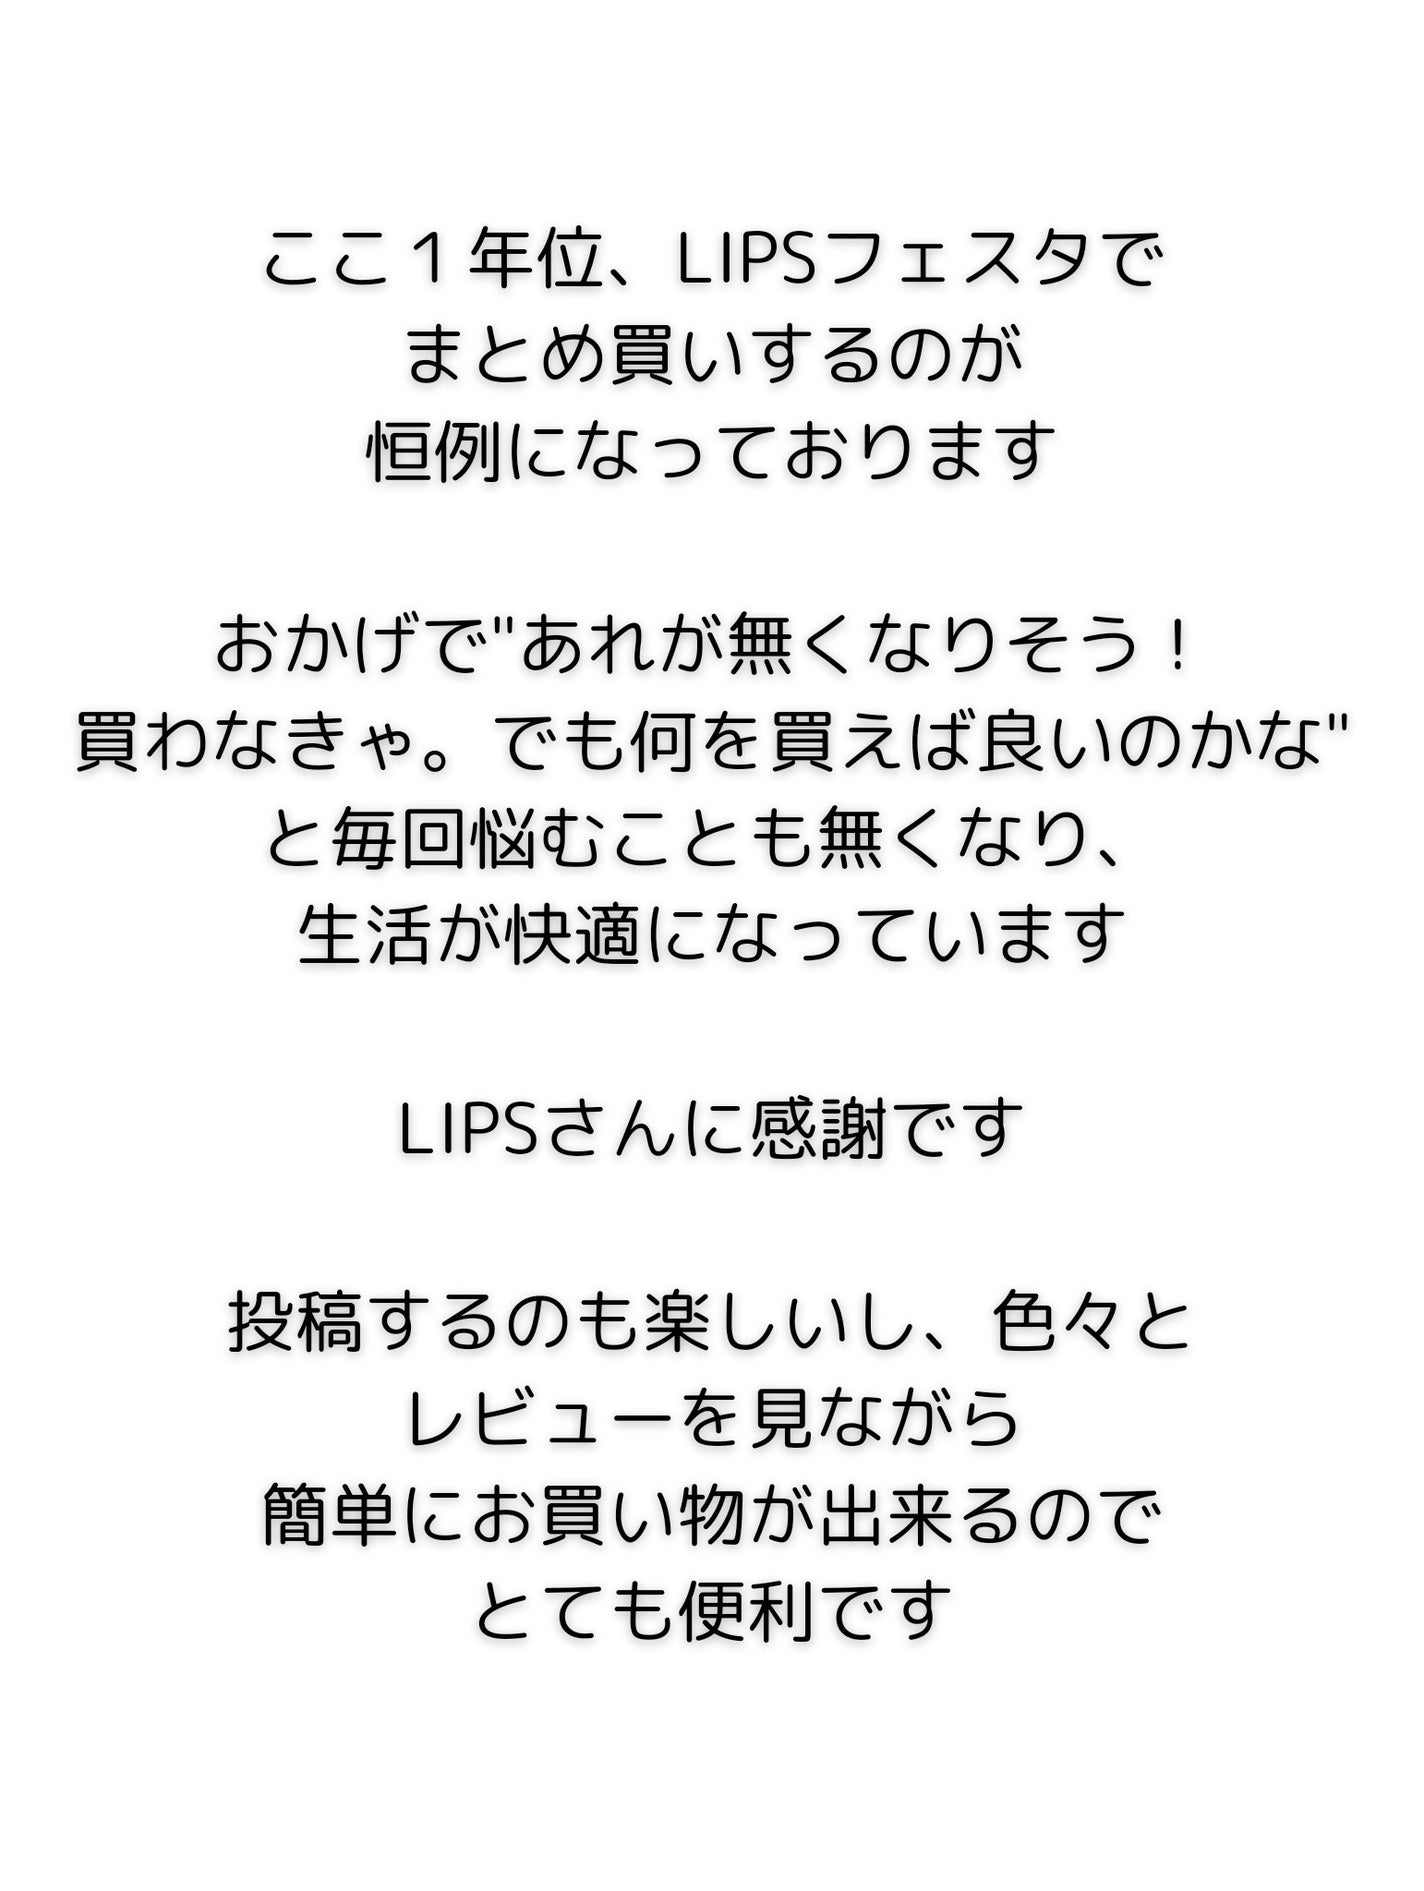 ここ１年位、LIPSフェスタで
まとめ買いするのが
恒例になっております
おかげで"あれが無くなりそう！
買わなきゃ。でも何を買えば良いのかな"
と毎回悩むことも無くなり、
生活が快適になっています
LIPSさんに感謝です
投稿するのも楽しいし、色々と
レビューを見ながら
簡単にお買い物が出来るので
とても便利です